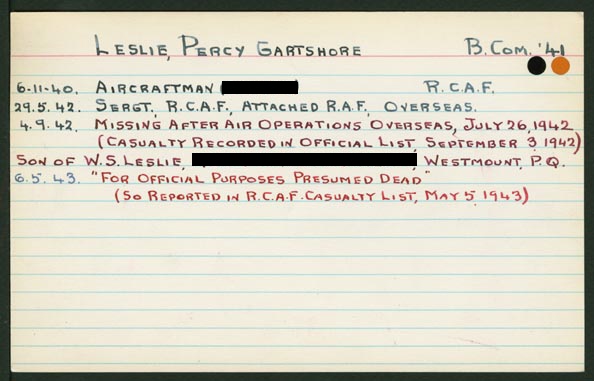 LESLIE, PERCY GARTSHORE B. COM. '41
6-11-40. AIRCRAFTMAN ( R.C.A.F.
29.5.42. SERGT, R.C.A.F., ATTACHED R.A.F., OVERSEAS.
4.9.42. MISSING AFTER AIR OPERATIONS OVERSEAS, JULY 26, 1942
(CASUALTY RECORDED IN OFFICIAL LIST, SEPTEMBER 3, 1942)
SON OF W.S. LESLIE, , WESTMOUNT, P.Q.
6.5.43. "FOR OFFICIAL PURPOSES PRESUMED DEAD"
(SO REPORTED IN R.C.A.F. CASUALTY LIST, MAY 5, 1943)